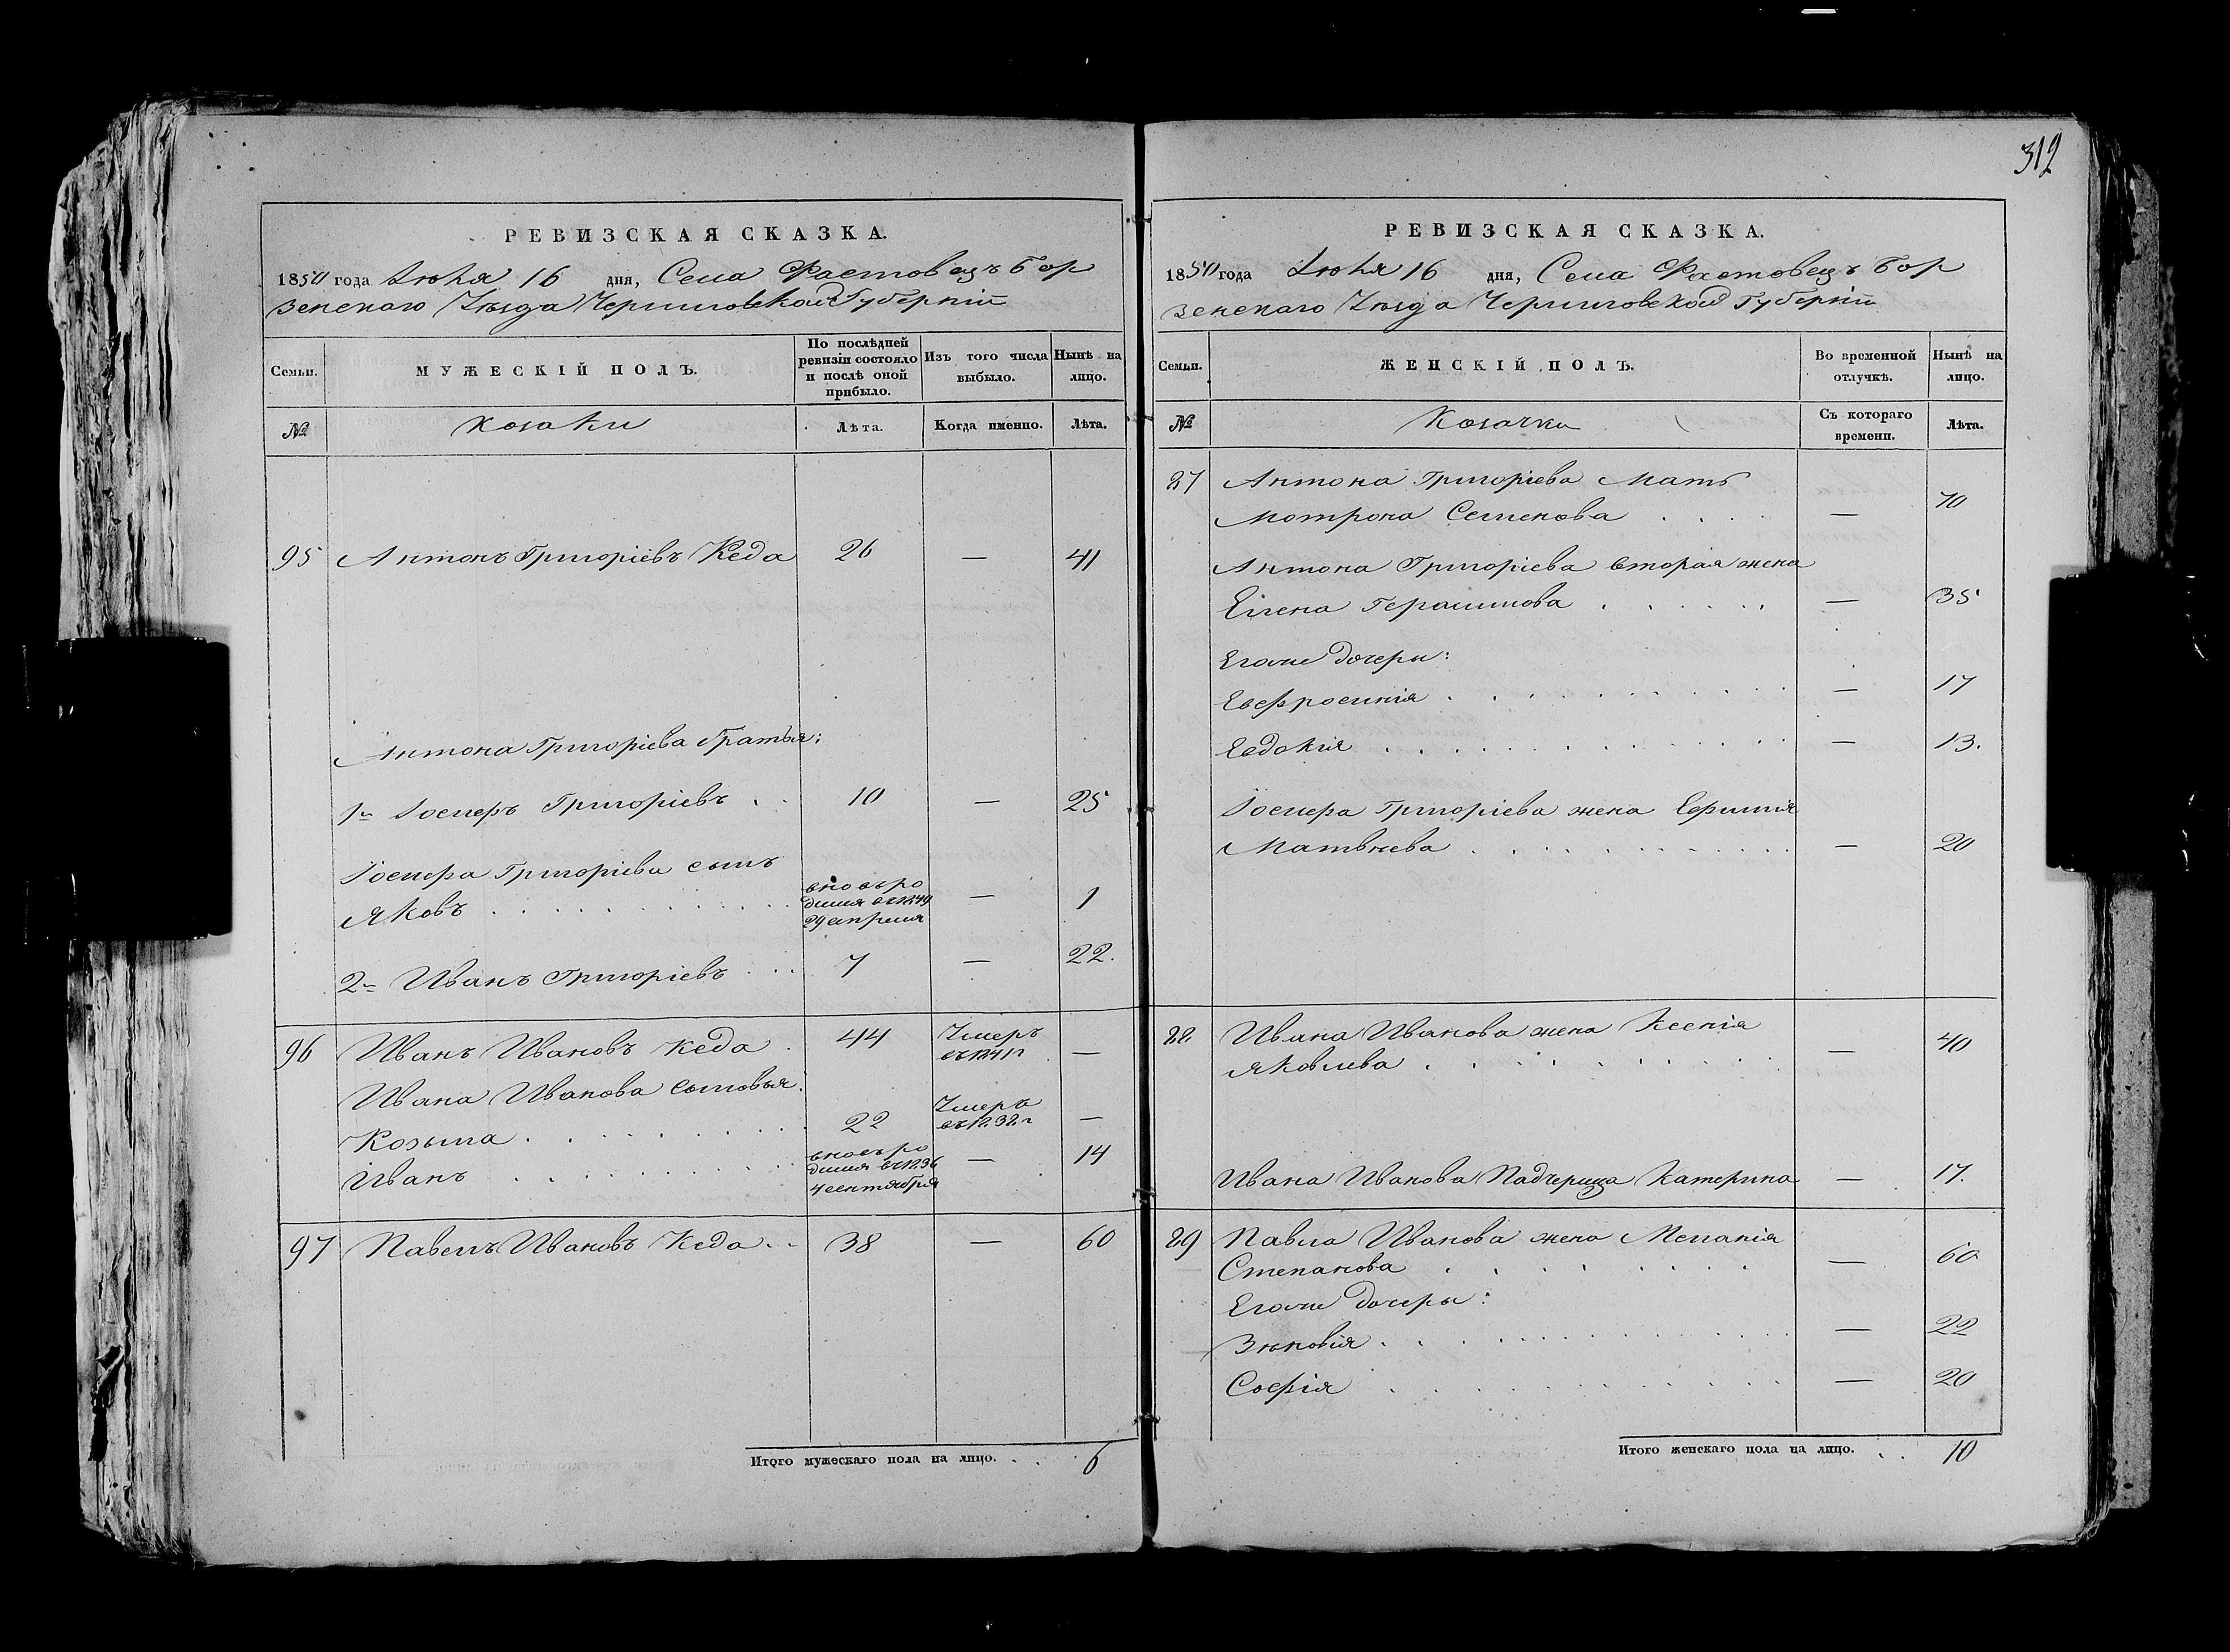 312
РЕВИЗСКАЯ СКАЗКА.
1850 года Іюня 16 дня, Села Фастовецъ Бор
зенскаго Уѣзда Черниговской Губерніи
Семьи.
МУЖЕСКІЙ ПОЛЪ.
По послѣдней ревизіи состояло и послѣ оной прибыло.
Изъ того числа выбыло.
Нынѣ на лицо.
№
Козаки
Лѣта.
Когда именно.
Лѣта.
95 Антонъ Григоріевъ Кеда 26 — 41
Антона Григоріева братья:
1й Іосифъ Григоріевъ . . 10 — 25
Іосифа Григоріева сынъ
Яковъ . . . . . . . . . . . вновь ро
дился въ 1849
29 апреля — 1
2й Иванъ Григоріевъ . . . 7 — 22.
96 Иванъ Ивановъ Кеда . 44 Умеръ
въ 1841г —
Ивана Иванова сыновья:
Козьма . . . . . . . . . . 22 Умеръ
въ 1838г —
Иванъ . . . . . . . . . . вновь ро
дился въ 1836
4 сентября — 14
97 Павелъ Ивановъ Кеда . . 38 — 60
Итого мужескаго пола на лицо. . . . 6
РЕВИЗСКАЯ СКАЗКА.
1850 года Іюня 16 дня, Села Фастовецъ Бор
зенскаго Уѣзда Черниговской Губерніи
Семьи.
ЖЕНСКІЙ ПОЛЪ.
Во временной отлучкѣ.
Нынѣ на лицо.
№
Козачки
Съ котораго времени.
Лѣта.
87 Антона Григоріева Мать
Мотрона Семенова . . . . — 70
Антона Григоріева вторая жена
Елена Герасимова . . . . . . — 35
Егоже дочери:
Евфросинія . . . . . . . . . . — 17
Евдокія . . . . . . . . . . . . — 13.
Іосифа Григоріева жена Ефимія
Матвѣева . . . . . . . . . . . — 20
88 Ивана Иванова жена Ксенія
Яковлева . . . . . . . . . — 40
Ивана Иванова Падчерица Катерина — 17.
89 Павла Иванова жена Меланія
Степанова . . . . . . . . — 60
Егоже дочери:
Зѣновія . . . . . . . . . . . . — 22
Софія . . . . . . . . . . . — 20
Итого женскаго пола на лицо. . . 10